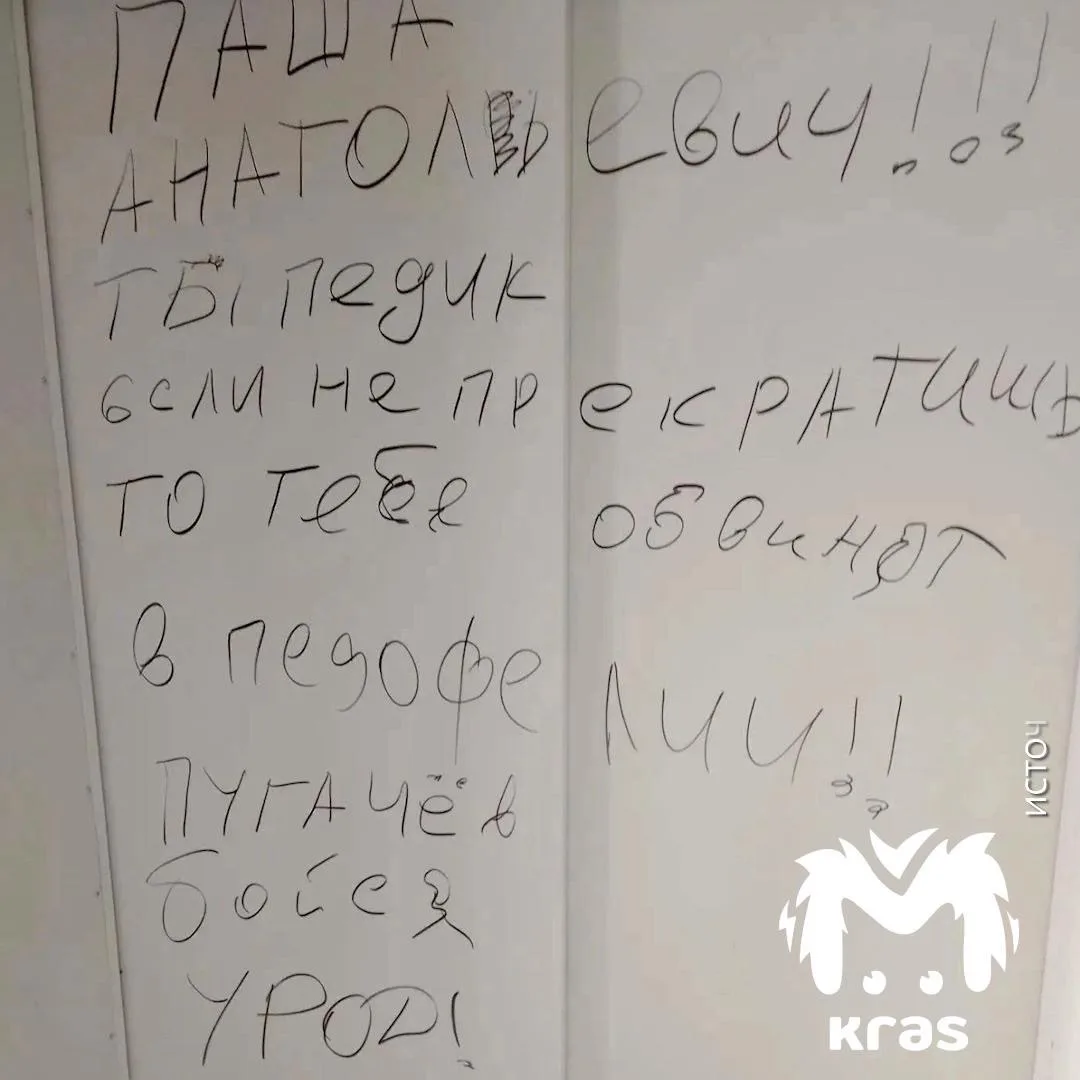 ПАША
АНАТОЛЬЕВИЧ!!!
ТЫ ПЕДИК
ЕСЛИ НЕ ПРЕКРАТИШЬ
ТО ТЕБЕ ОБВИНЯТ
В ПЕДОФЕЛИИ!!
ПУГАЧЁВ
БОЙСЯ
УРОД!
ИСТОЧ
кras